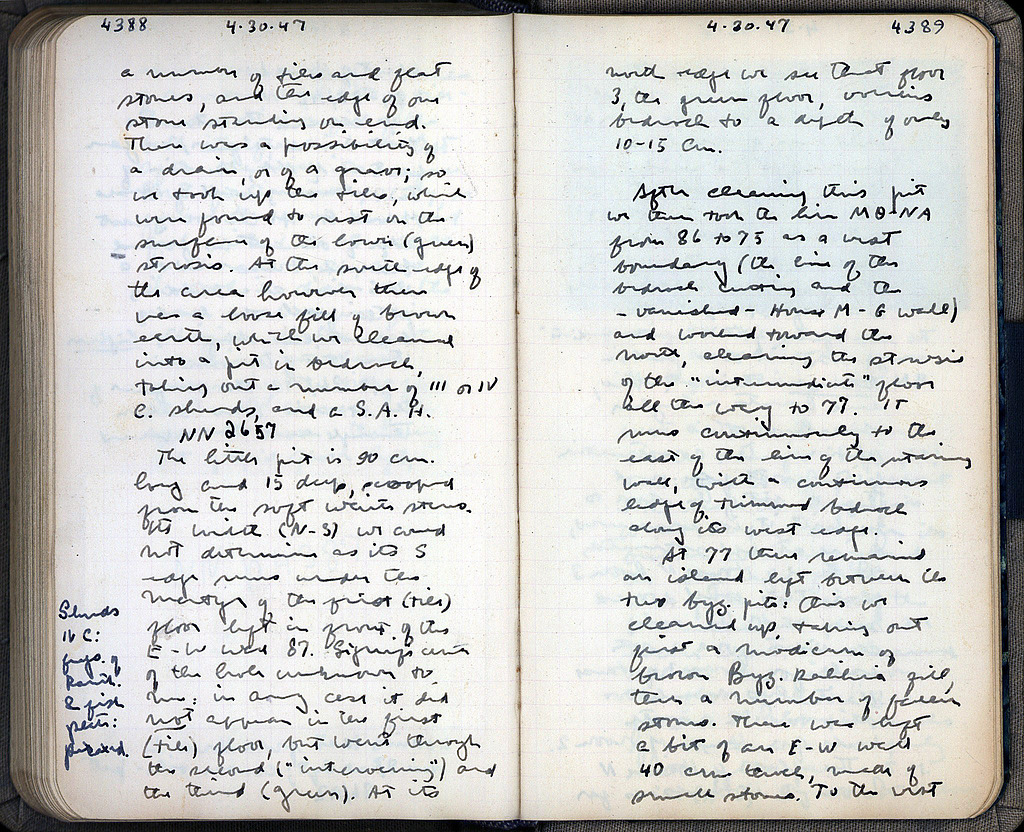 4388 4·30·47
a number of tiles and flat
stones, and the edge of one
stone standing on end.
There was a possibility of
a drain, or of a grave; so
we took up the tiles, which
were found to rest on the
surface of the lower (green)
strosis. At the south edge of
the area however there
was a loose fill of brown
earth, which we cleaned
into a pit in bedrock,
taking out a number of III or IV
C. sherds, and a S. A. H.
NN 2657
The little pit is 90 cm.
long and 15 deep, scooped
from the soft white stereo.
Its width (N-S) we could
not determine as its S
edge runs under the
martyr of the first (tile)
floor left in front of the
E-W wall 87. Significance
of the hole unknown to
me: in any case it did
not appear in the first
(tile) floor, but went through
the second ("intervening") and
the third (green). At its
Sherds
IV C:
frags. of
kanth.
& fish
plate:
4·30·47 4389
north edge we see that floor
3, the green floor, covers
bedrock to a depth of only
10-15 cm.
After cleaning this pit
we then took the line MΘ-NA
from 86 to 75 as a west
boundary (the line of the
bedrock cutting and the
- vanished - House M - G wall)
and worked toward the
north, cleaning the strosis
of the "intermediate" floor
all the way to 77. It
runs continuously to the
east of the line of the
wall, with a continuous
ledge of trimmed bedrock
along its west edge.
At 77 there remained
an island left between the
two byz. pits: this we
cleaned up, taking out
first a modicum of
brown Byz. kathina fill,
then a number of fallen
stones. There was left
a bit of an E-W wall
40 cm thick, made of
small stones. To the west